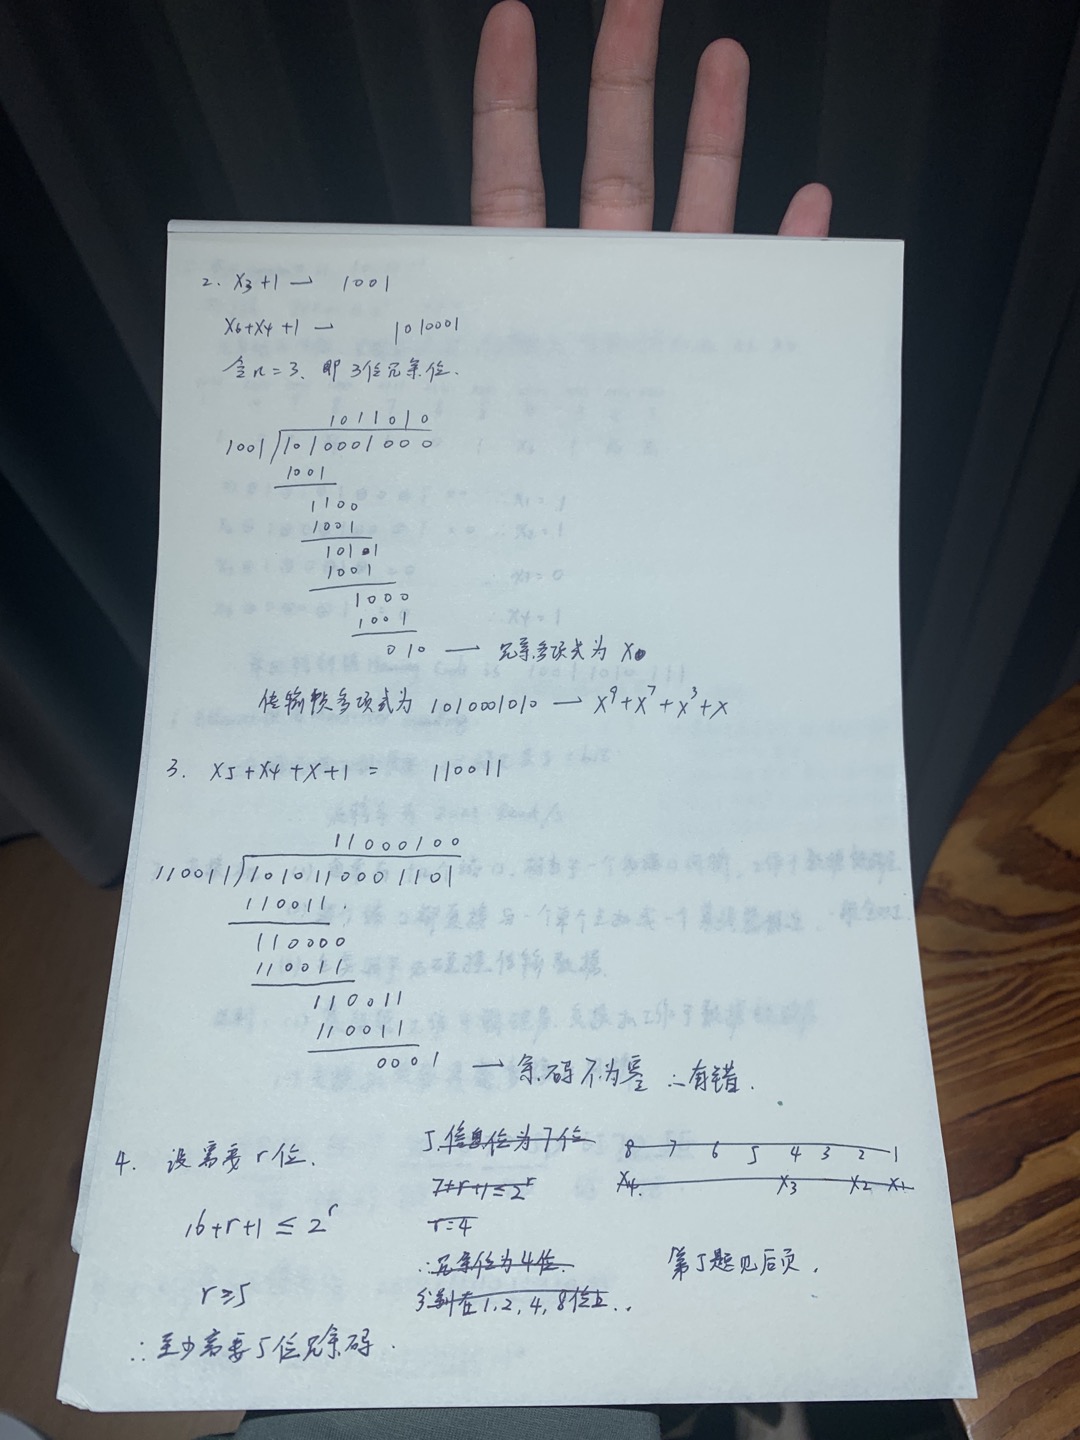 2. X3+1 → 1001
X6+X4+1 → 1010001
令n=3. 即3位冗余位.
1011010
1001 1010001000
1001
1100
1001
1001
1000
1001
010 → 冗余多项式为 X
传输帧多项式为 1010001010 → X⁹+X⁷+X³+X
3. X5+X4+X+1 = 110011
11000100
110011 1010110001101
110011
110000
110011
110011
110011
0001 → 余码不为零 ∴有错.
4. 设需要r位.
16+r+1 ≤ 2ʳ
r≥5
∴至少需要5位冗余码.
5. 信息位为7位
7+r+1≤2ʳ
r=4
∴冗余位为4位.
分别在1,2,4,8位上..
8 7 6 5 4 3 2 1
X4. X3 X2 X1
第5题见后页.